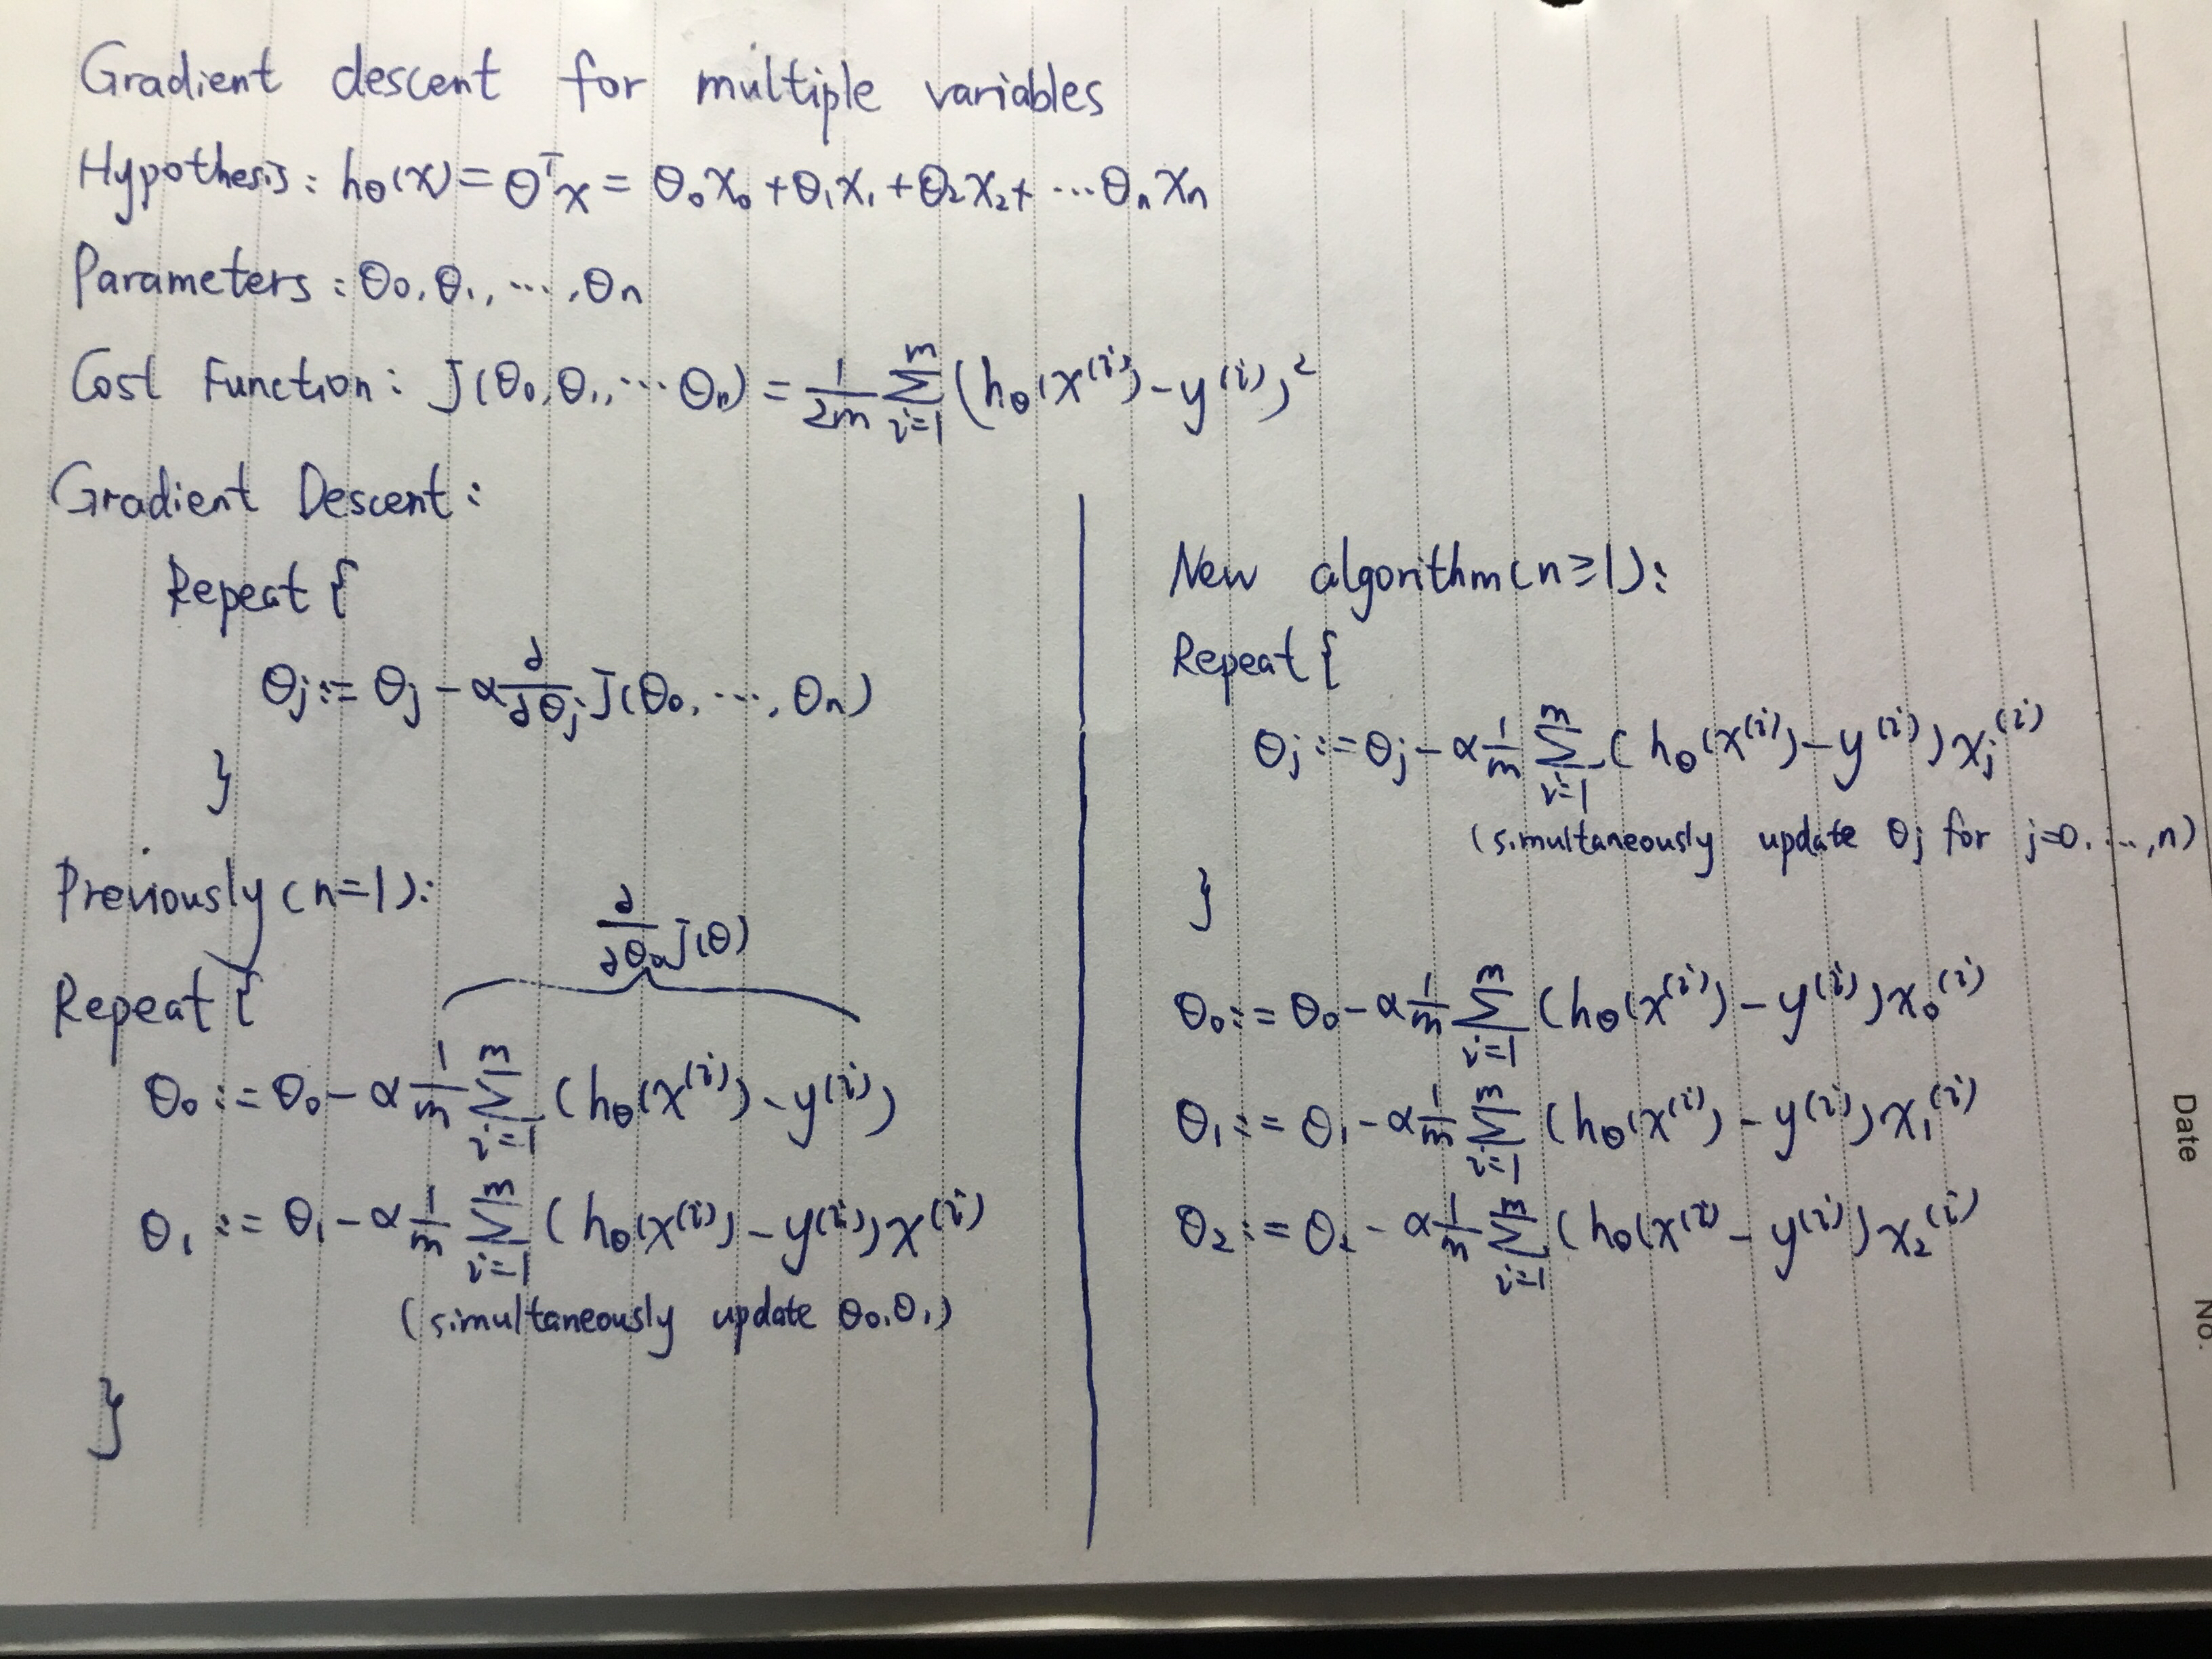 Gradient descent for multiple variables
Hypothesis: hθ(x) = θᵀx = θ₀x₀ + θ₁x₁ + θ₂x₂ + ⋯θₙxₙ
Parameters: θ₀, θ₁, ⋯, θₙ
Cost Function: J(θ₀, θ₁, ⋯θₙ) = 1/2m ∑ᵢ₌₁ᵐ (hθ(x⁽ⁱ⁾) - y⁽ⁱ⁾)²
Gradient Descent:
Repeat {
θj := θj - α ∂/∂θj J(θ₀, ⋯, θₙ)
}
Previously (n=1):
Repeat {
∂/∂θ₀ J(θ)
θ₀ := θ₀ - α 1/m ∑ᵢ₌₁ᵐ (hθ(x⁽ⁱ⁾) - y⁽ⁱ⁾)
θ₁ := θ₁ - α 1/m ∑ᵢ₌₁ᵐ (hθ(x⁽ⁱ⁾) - y⁽ⁱ⁾) x⁽ⁱ⁾
(simultaneously update θ₀, θ₁)
}
New algorithm (n≥1):
Repeat {
θj := θj - α 1/m ∑ᵢ₌₁ᵐ (hθ(x⁽ⁱ⁾) - y⁽ⁱ⁾) xj⁽ⁱ⁾
(simultaneously update θj for j=0, ⋯, n)
}
θ₀ := θ₀ - α 1/m ∑ᵢ₌₁ᵐ (hθ(x⁽ⁱ⁾) - y⁽ⁱ⁾) x₀⁽ⁱ⁾
θ₁ := θ₁ - α 1/m ∑ᵢ₌₁ᵐ (hθ(x⁽ⁱ⁾) - y⁽ⁱ⁾) x₁⁽ⁱ⁾
θ₂ := θ₂ - α 1/m ∑ᵢ₌₁ᵐ (hθ(x⁽ⁱ⁾ - y⁽ⁱ⁾) x₂⁽ⁱ⁾
Date
No.